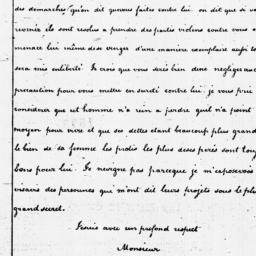 des demarches qu'on dit que vous faites contre lui. on dit que si vous
revenir ils sont resolus a prendre des partis violens contre vous
menace lui même de se vanger d'une maniere exemplaire
sera mis en liberté. Je crois que vous seriez bien de ne negliger aucune
precaution pour vous mettre en sureté contre lui. je vous prie
considerer que cet homme n'a rien a perdre qu'il n'a point
moyen pour vivre et que ses dettes etant beaucoup plus grandes
le bien de sa femme les partis les plus desesperés sont tous
bons pour lui. Je ne signe pas parceque je m'exposerois
visavis des personnes qui m'ont dit leurs projets sous le plus
grand secret.
Je suis avec un profond respect
Monsieur